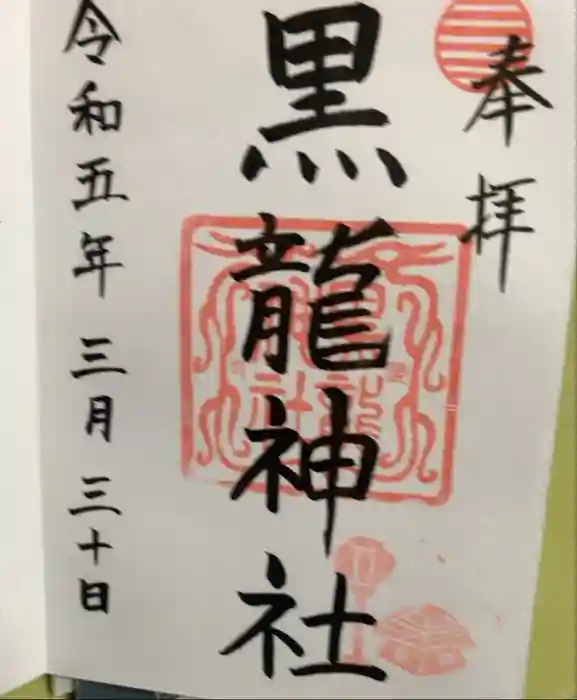 奉拝
黒龍神社
令和五年 三月 三十日